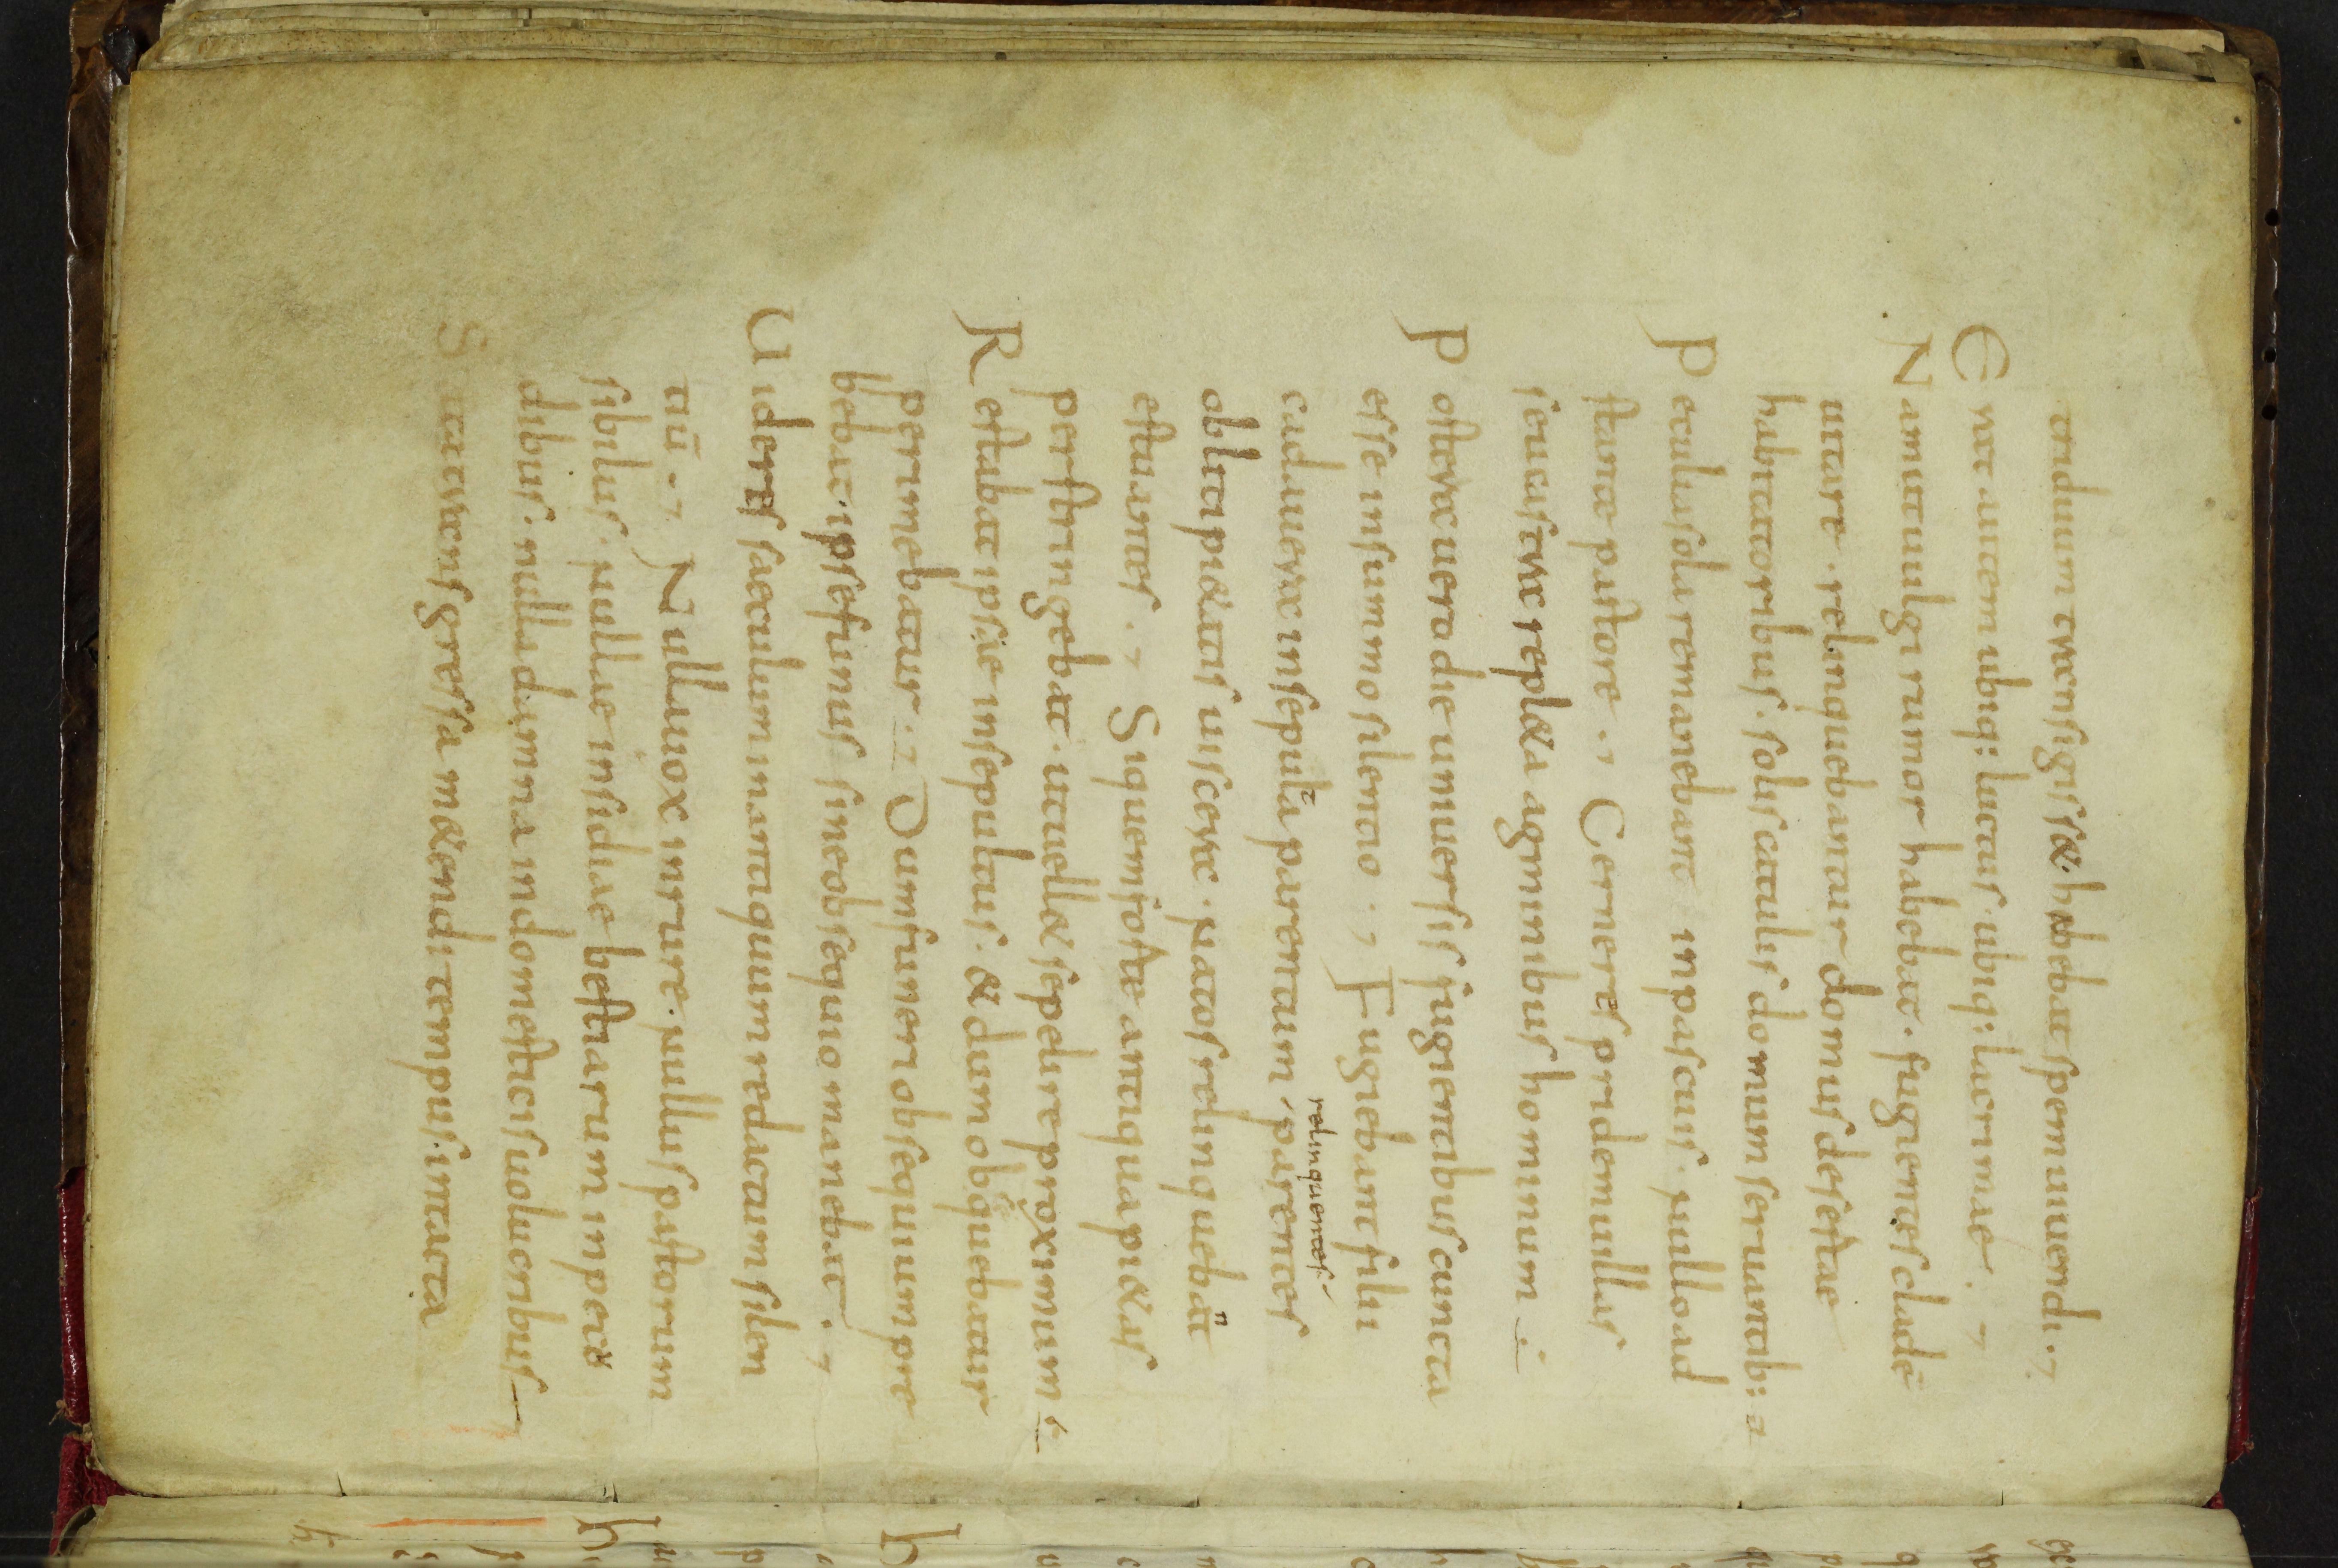 triduum transigisset. habebat spem uiuendi.
Erat autem ubiq: luctus. ubiq: lacrimae.
Nam ut uulgi rumor habebat. fugientes cladē
uitare. relinquebantur domus desertae
habitatoribus. solus catulis domum seruantib:
Peculia sola remanebant in pascuis. nullo ad
stante pastore. Cerneres pridem uillas
seu castra repleta agminibus hominum
Postera uero die uniuersis fugientibus cuncta
esse in summo silentio. Fugiebant filii
relinquentes
cadauera insepulta parentum, parentes
oblita pietatis uiscera. natos relinquebant
estuantes. Siquem forte antiqua pietas
perstringebat. ut uellet sepelire proximum
Restabat ipse insepultus. & dum obsquebatur
perimebatur. Dum funeri obsequium pre
bebat. ipse funus sine obsequio manebat.
Uideres saeculum in antiquum redactum silen
tiū. Nulla uox in rure. nullus pastorum
sibilus. nullae insidiae bestiarum in pecu
dibus. nulla damna in domesticis uolucribus
Sata transgressa metendi tempus. intacta